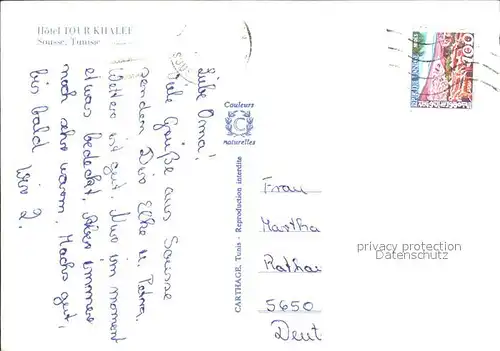 Hôtel TOUR KHALEF
Sousse, Tunisie
Liebe Oma!
Viele Grüße aus Sousse
senden Dir Elke u. Petra.
Wetter ist gut. Nur im moment
etwas bedeckt. Aber immer
noch sehr warm. Machs gut,
bis bald
Wir 2.
Couleurs
C
naturelles
CARTHAGE, Tunis - Reproduction interdite
100
Frau
Martha
privacy protection
Datenschutz
5650
Deut